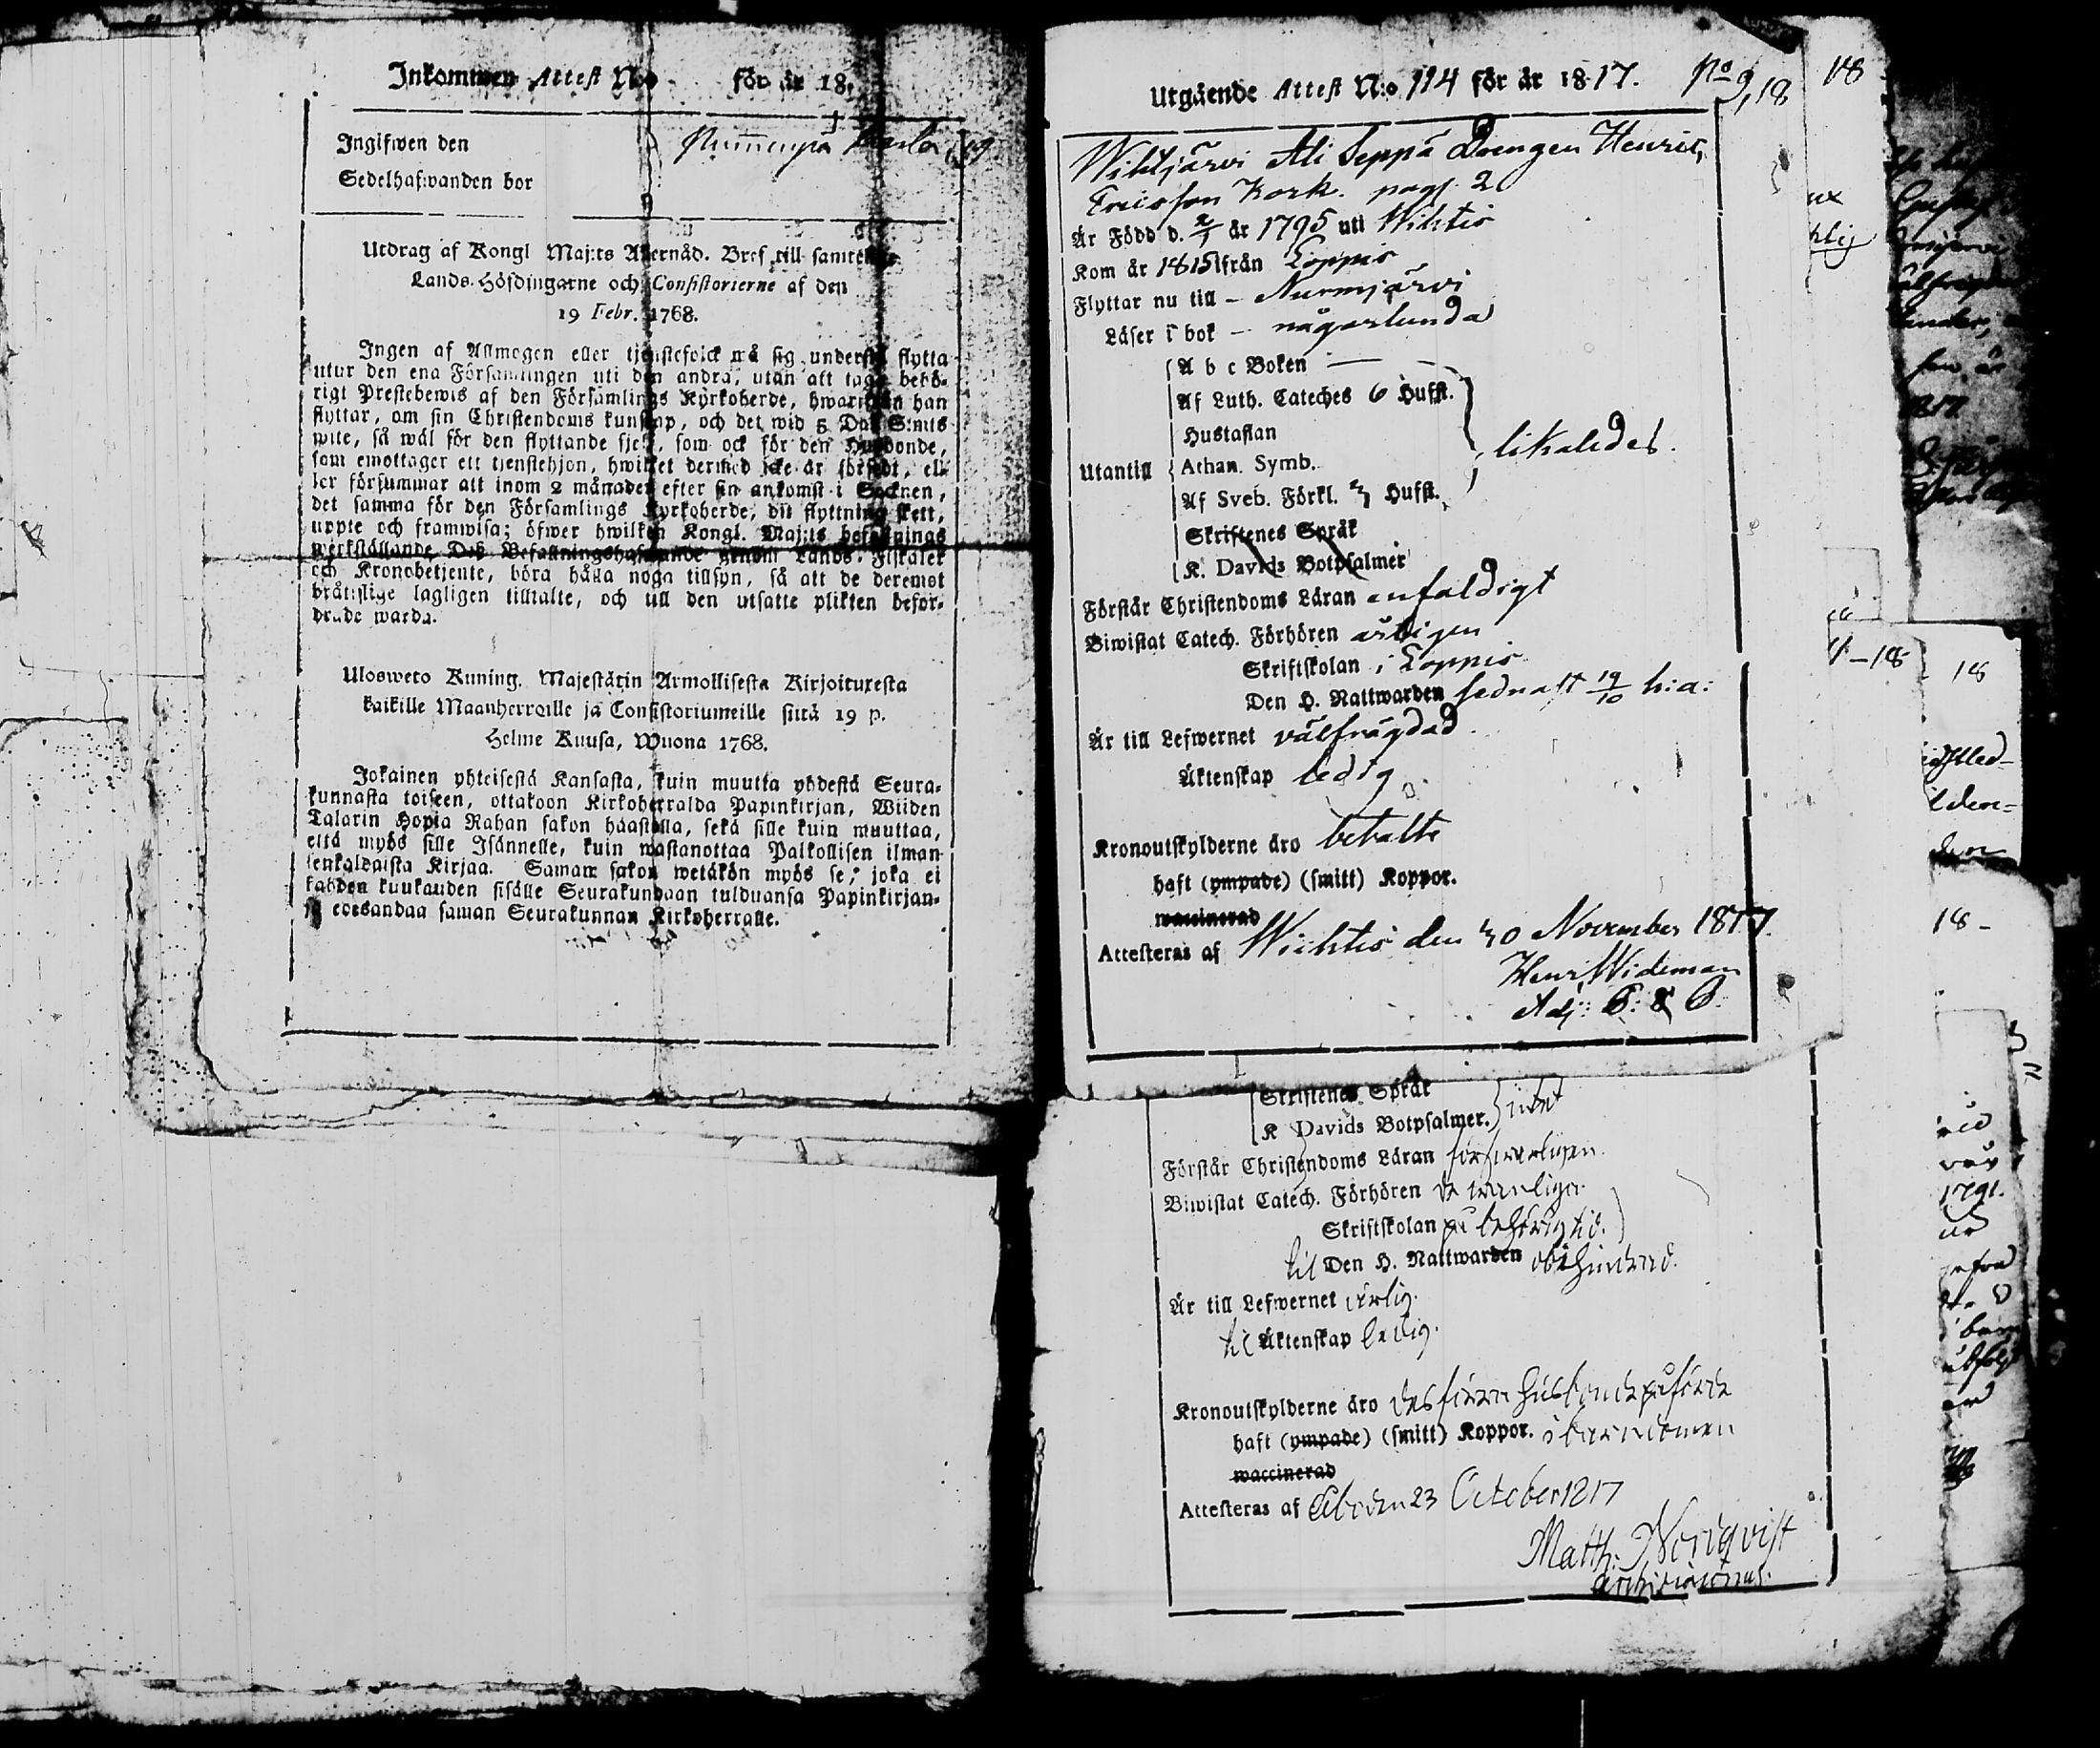 Inkommen Attest N:o för år 18
Ingifwen den
Sedelhafwanden bor
Utdrag af Kongl Maj:ts Allernåd. Bref till samtelige
Lands-Höfdingarne och Consistorierne af den
19 Febr. 1768.
Ingen af Allmogen eller tjenstefolck må sig understå flytta
utur den ena Församlingen uti den andra, utan att taga behö-
rigt Prestebewis af den Församlings Kyrkoherde, hwarifrån han
flyttar, om sin Christendoms kunskap, och det wid 5 Dal. S:mts
wite, så wäl för den flyttande sjelf, som ock för den Husbonde,
som emottager ett tjenstehjon, hwilket dermed icke är försedt, el-
ler försummar att inom 2 månader efter sin ankomst i Socknen,
det samma för den Församlings Kyrkoherde, dit flyttning skett,
uppte och framwisa; öfwer hwilken Kongl. Maj:ts befallnings
werkställande Deß Befallningshafwande genom Lands-Fiskaler
och Kronobetjente, böra hålla noga tillsyn, så att de deremot
bråtislige lagligen tilltalte, och till den utsatte plikten befor-
drade warda.
Ulosweto Kuning. Majestätin Armollisesta Kirjoituxesta
kaikille Maanherroille ja Consistoriumeille siitä 19 p.
Helme Kuusa, Wuona 1768.
Jokainen yhteisestä Kansasta, kuin muutta yhdestä Seura-
kunnasta toiseen, ottakoon Kirkoherralda Papinkirjan, Wiiden
Talarin Hopia Rahan sakon haastolla, sekä sille kuin muuttaa,
että myös sille Isännelle, kuin wastanottaa Palkollisen ilman
senkaldaista Kirjaa. Saman sakon wetäkön myös se, joka ei
kahden kuukauden sisälle Seurakundaan tulduansa Papinkirjan-
sa edesandaa saman Seurakunnan Kirkoherralle.
Utgående Attest N:o 114 för år 1817. No 9, 18
Wihtjärvi Ali Seppä Drengen Henric
Ericsson Kork. pag. 2
Är Född d. 2/1 år 1795 uti Wihtis
Kom år 1815 ifrån Loppis
Flyttar nu till - Nurmijärvi
Läser i bok - någorlunda
A b c Boken
Af Luth. Cateches 6 Hufst.
Hustaflan
Utantill Athan. Symb. likaledes.
Af Sveb. Förkl. 3 Hufst.
Skriftenes Språk
K. Davids Botpsalmer
Förstår Christendoms Läran enfaldigt
Biwistat Catech. Förhören årligen
Skriftskolan i Loppis
Den H. Nattwarden sednast 19/10 h:a:
Är till Lefwernet välfrägdad.
Äktenskap ledig.
Kronoutskylderne äro betalte
haft (ympade) (smitt) Koppor.
waccinerad
Attesteras af Wichtis den 30 November 1817.
Henr Wideman
Adj:
Skriftenes Språk
K Davids Botpsalmer. intet
Förstår Christendoms Läran försvarligen.
Biwistat Catech. Förhören de vanliga
Skriftskolan på behörig tid.
til Den H. Nattwarden obehindrad.
Är till Lefwernet ärlig.
til Äktenskap ledig.
Kronoutskylderne äro des förra husbonde påförde
haft (ympade) (smitt) Koppor. i barndomen
waccinerad
Attesteras af Åbo den 23 October 1817
Matth: Norqvist
18
18
18
18 -
1791.